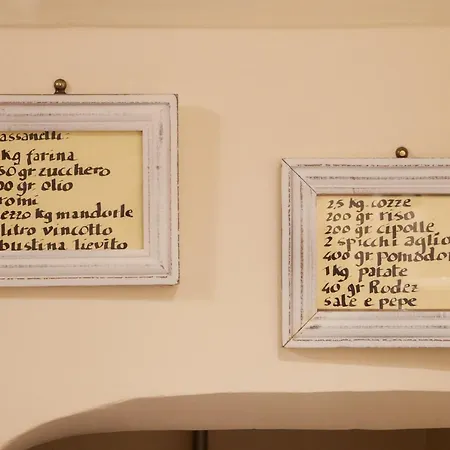 assanelli:
kg farina
50 gr zucchero
00 gr olio
romi
ezzo kg mandorle
litro vincotto
bustina lievito
2,5 kg. cozze
200 gr riso
200 gr cipolle
2 spicchi aglio
400 gr pomodor
1 kg patate
40 gr Rodez
sale e pepe